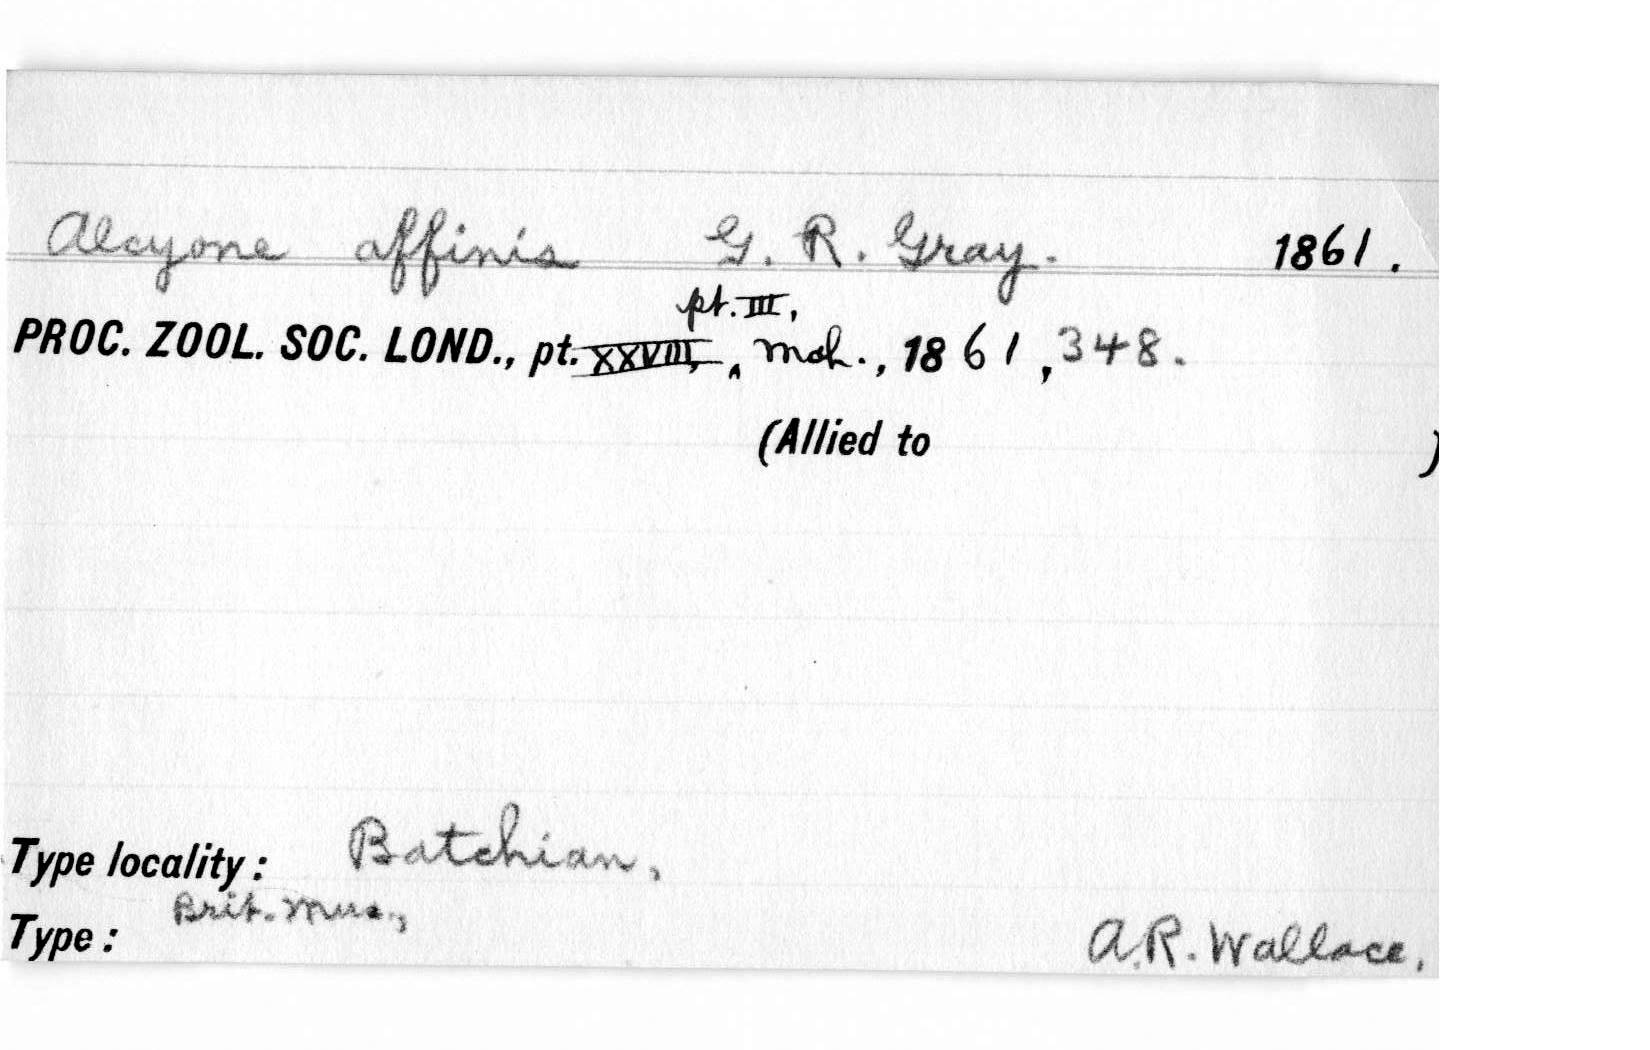 Alcyone affinis G. R. Gray. 1861.
pt. III,
PROC. ZOOL. SOC. LOND., pt. XXVIII, ‸ mch., 1861, 348.
(Allied to )
Type locality: Batchian,
Type: Brit. Mus., A.R. Wallace.